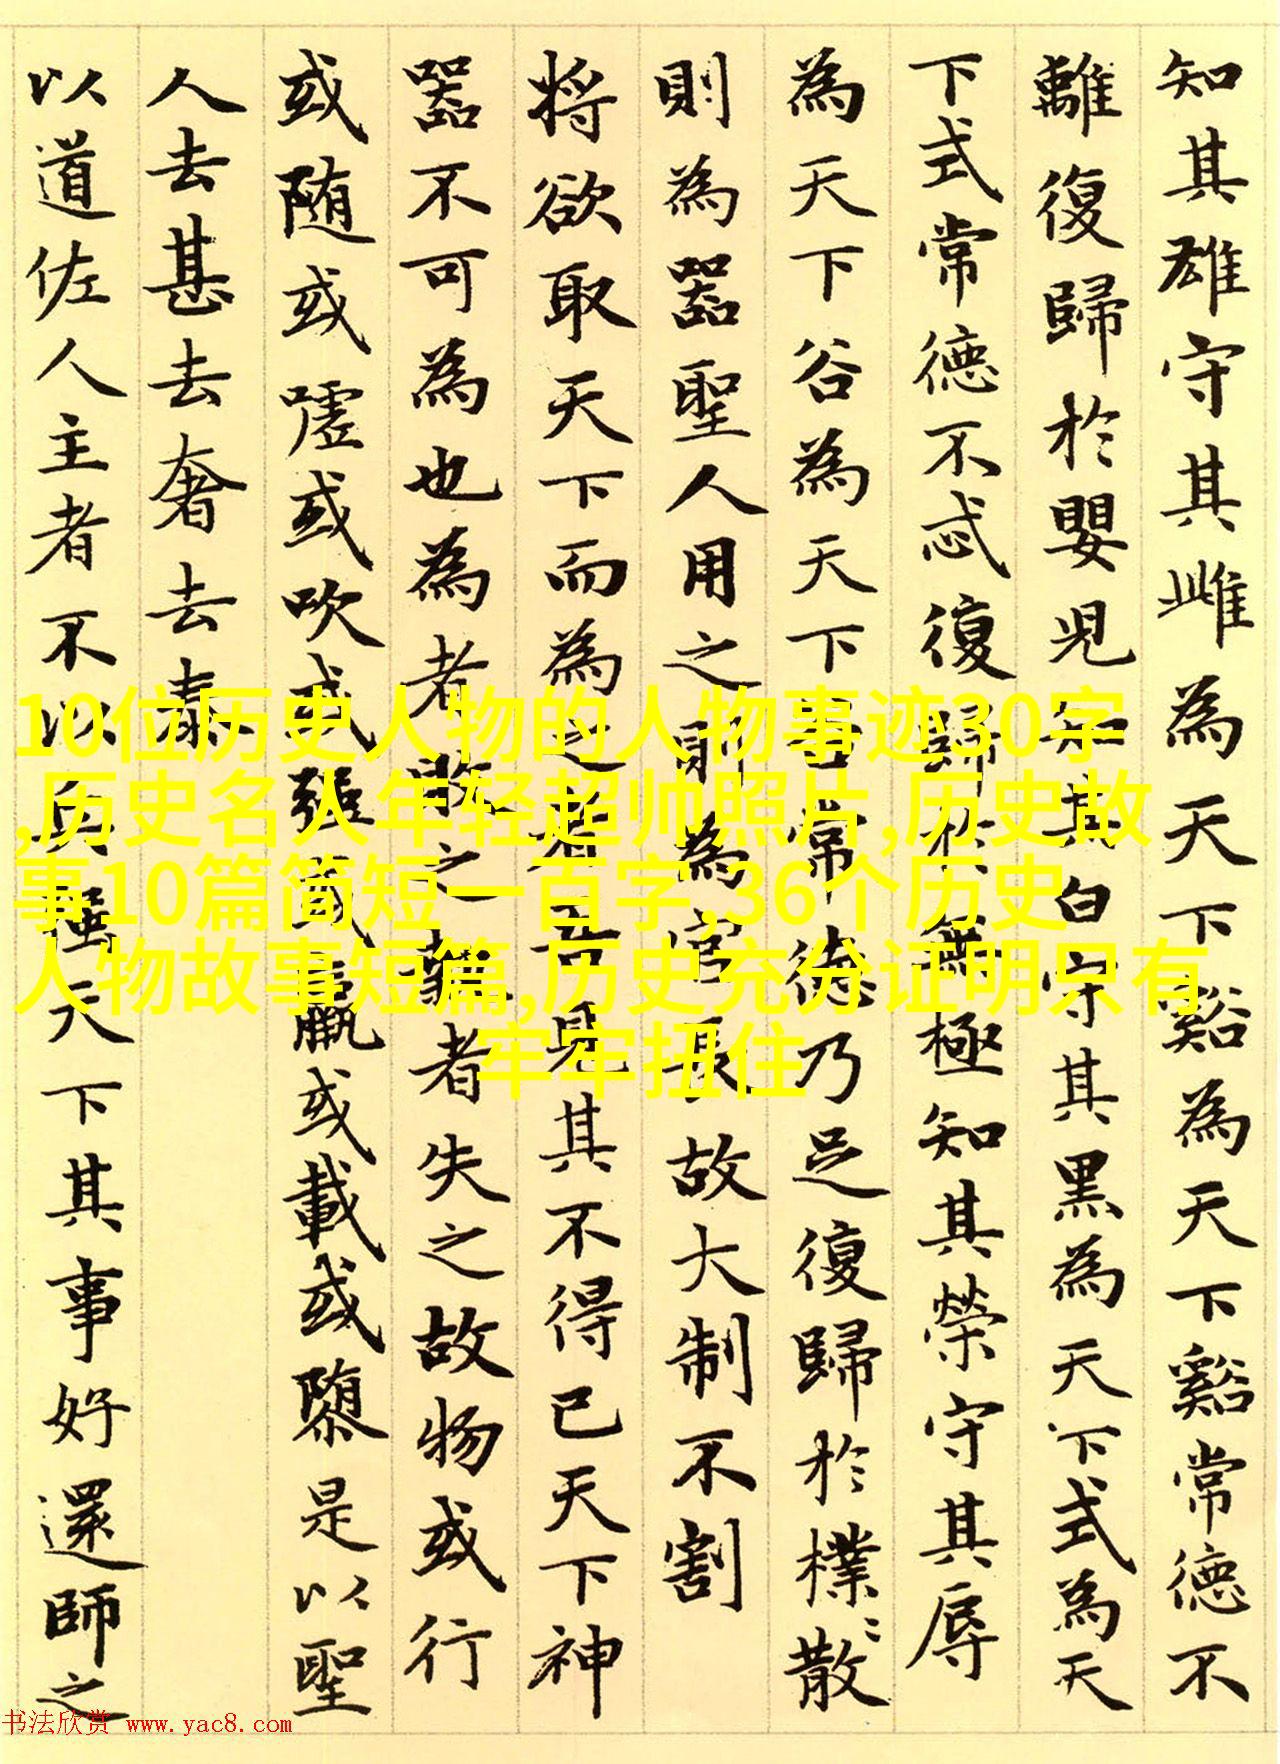 知其雄守其雌為天下谿為天下谿常德不
離復歸於嬰兒知其白守其黑為天下式為天
下式常德不忒復歸於無極知其榮守其辱
為天下谷為天下谷常德乃足復歸於樸〻散
則為器聖人用之則為官長故大制不割
將欲取天下而為之者吾見其不得已天下神
器不可為也為者敗之執者失之故物或行
或随或噓或吹或強或羸或載或隳是以聖
人去甚去奢去泰
以道佐人主者不以兵强天下其事好還師之
10位历史人物的人物事迹30字
,历史名人年轻超帅照片,历史故
事10篇简短一百字,36个历史
人物故事短篇,历史充分证明只有
牢牢扭住
书法欣赏 www.yac8.com